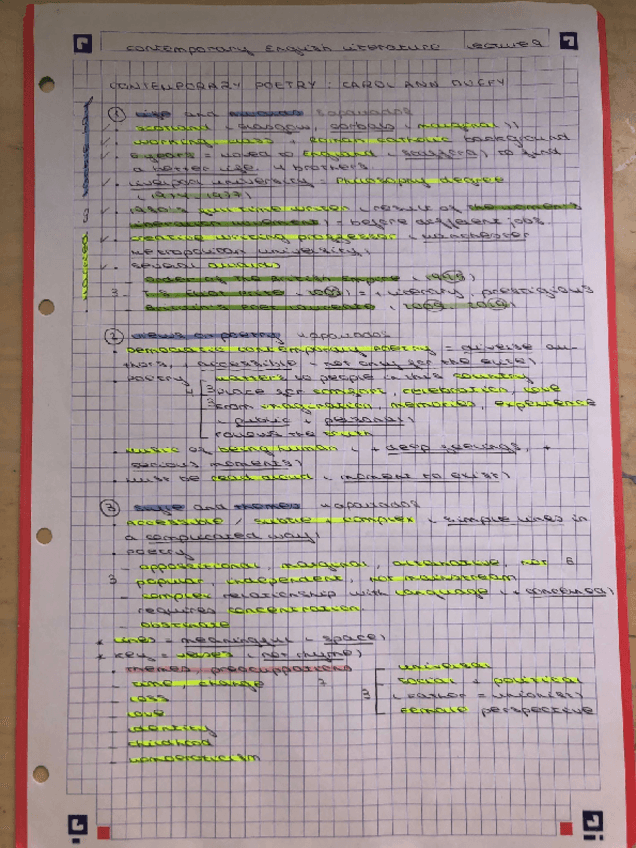 contemporary English literature lecture 9
CONTEMPORARY POETRY: CAROL ANN DUFFY
① life and
• Scotland (Glasgow, Gorbals, marginal))
• working class + Roman catholic background
• 6 years = moved to England (Stafford) to find
a better life 4 brothers
• Liverpool university = Philosophy degree
(1974-1977)
• 1980's full time writer (result of the women's
liberation movement) - before different jobs
• creative writing professor (Manchester
metropolitan university)
• several awards
- order of the British Empire (1995)
3 - T.S. Eliot prize + literary, prestigious
- Britain's Poet Laureate (2009-2019)
② views on poetry
• Democratic contemporary poetry = diverse au-
thors, + accessible - not only for the elite)
• poetry matters to people in this country
place for comfort, celebration, love
from imagination, memories, experience
(public + personal)
the truth
• music of being human (+ deep feelings, +
serious moments)
• must be read aloud (moment to exist)
③ style and themes
• accessible / subtle + complex (simple lines in
a complicated way)
• poetry
- oppositional, marginal, alternative, not
3 popular, independent, not mainstream
- complex relationship with language
requires concentration
- obstinate
* lines = meaningful (space)
* key = verses (not rhyme)
• themes, preoccupations
- time, change 7
- loss
- love
- identity
- childhood
-
- universal
- social + political
3 (father = unionist)
- female perspective